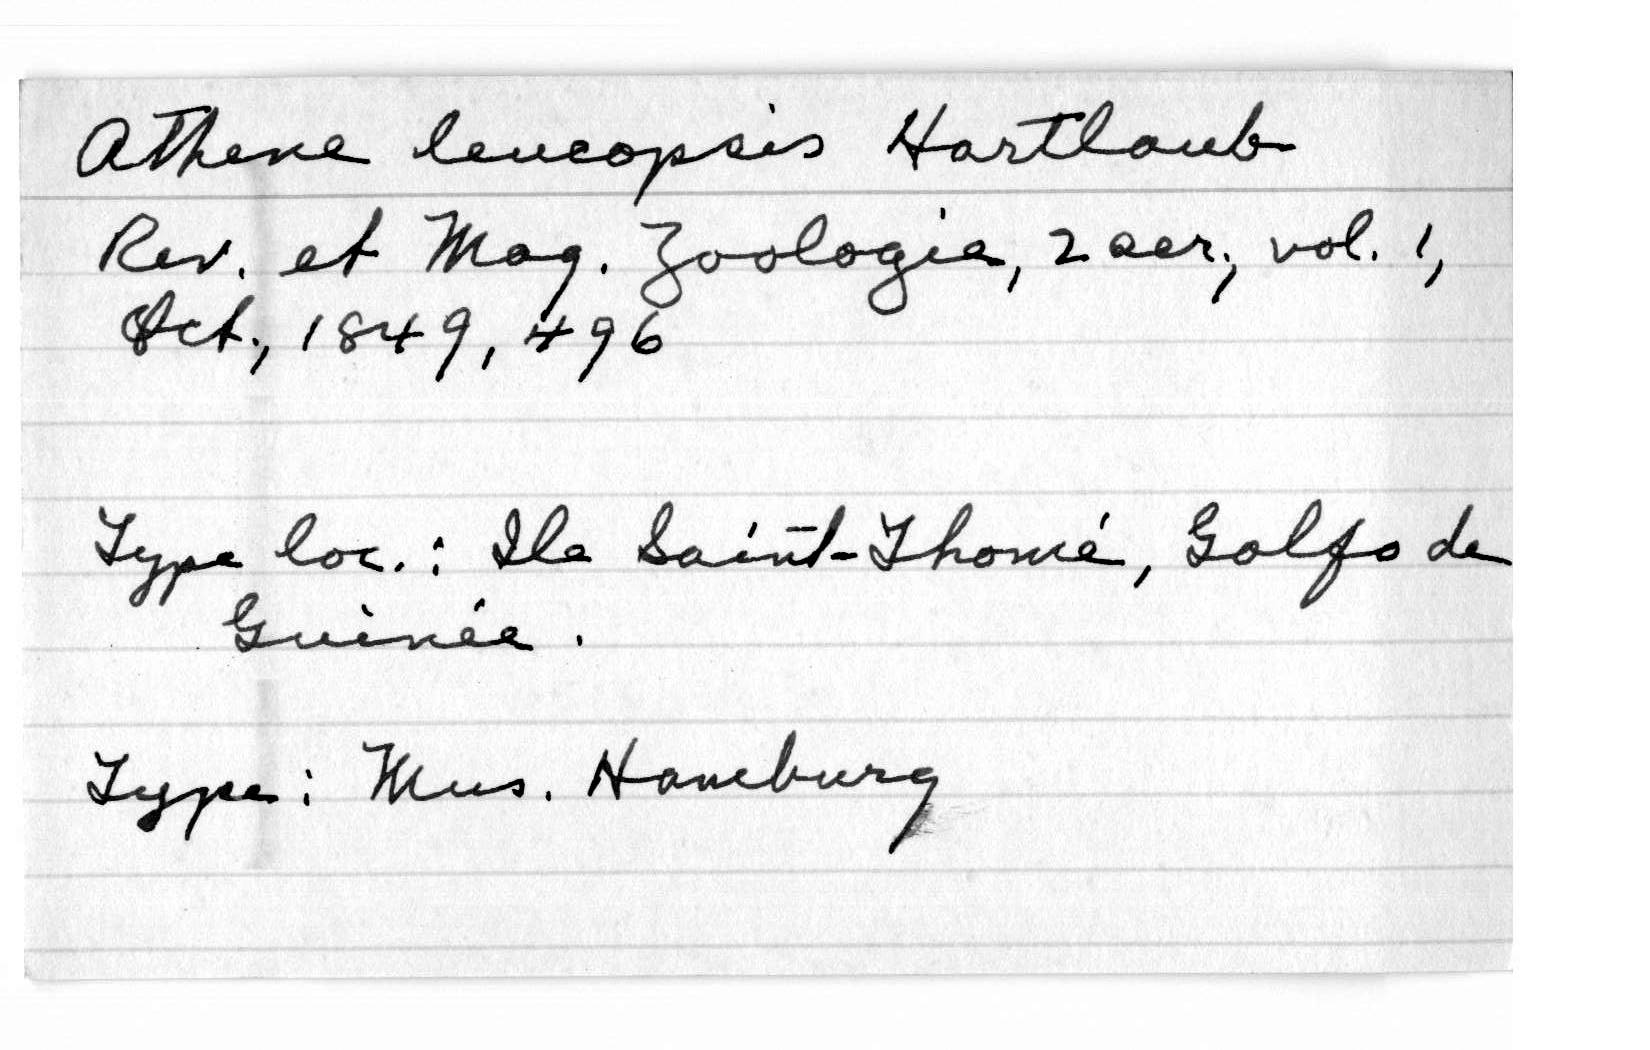 Athene leucopsis Hartlaub
Rev. et Mag. Zoologie, 2 ser., vol. 1,
Oct., 1849, 496
Type loc.: Ile Saint-Thomé, Golfo de
Guinée.
Type: Mus. Hamburg